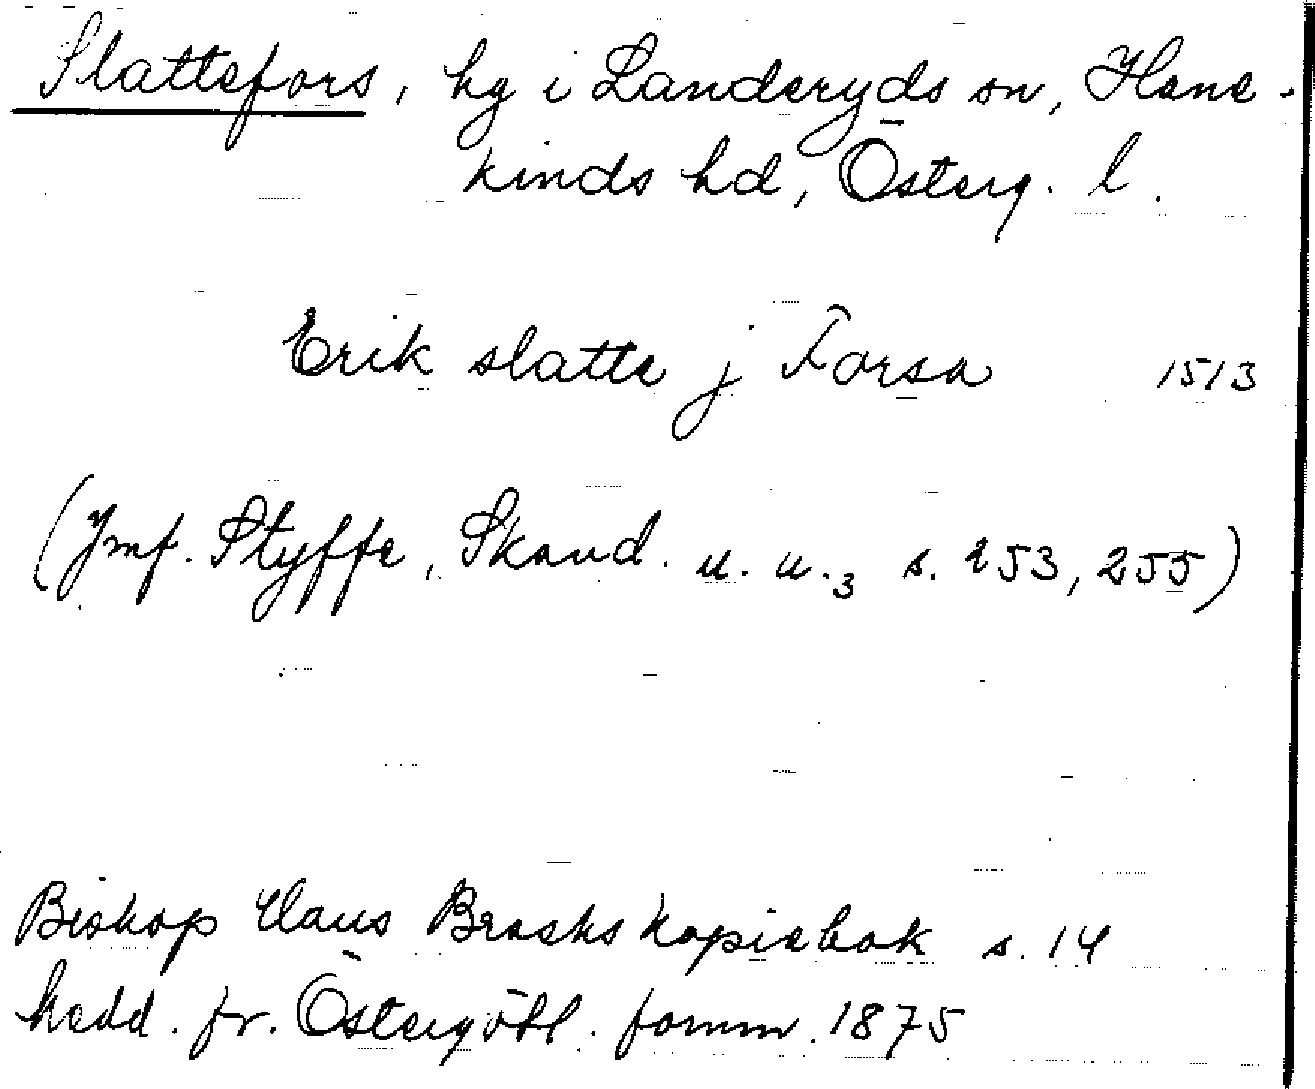 Slattefors, hg i Landeryds sn, Hane-
kinds hd, Österg. l.
Erik slatte j Forsa 1513
(Jmf. Styffe, Skand. u. u.3 s. 253, 255)
Biskop Hans Brasks kopiebok s. 14
Medd. fr. Östergötl. fornm. 1875